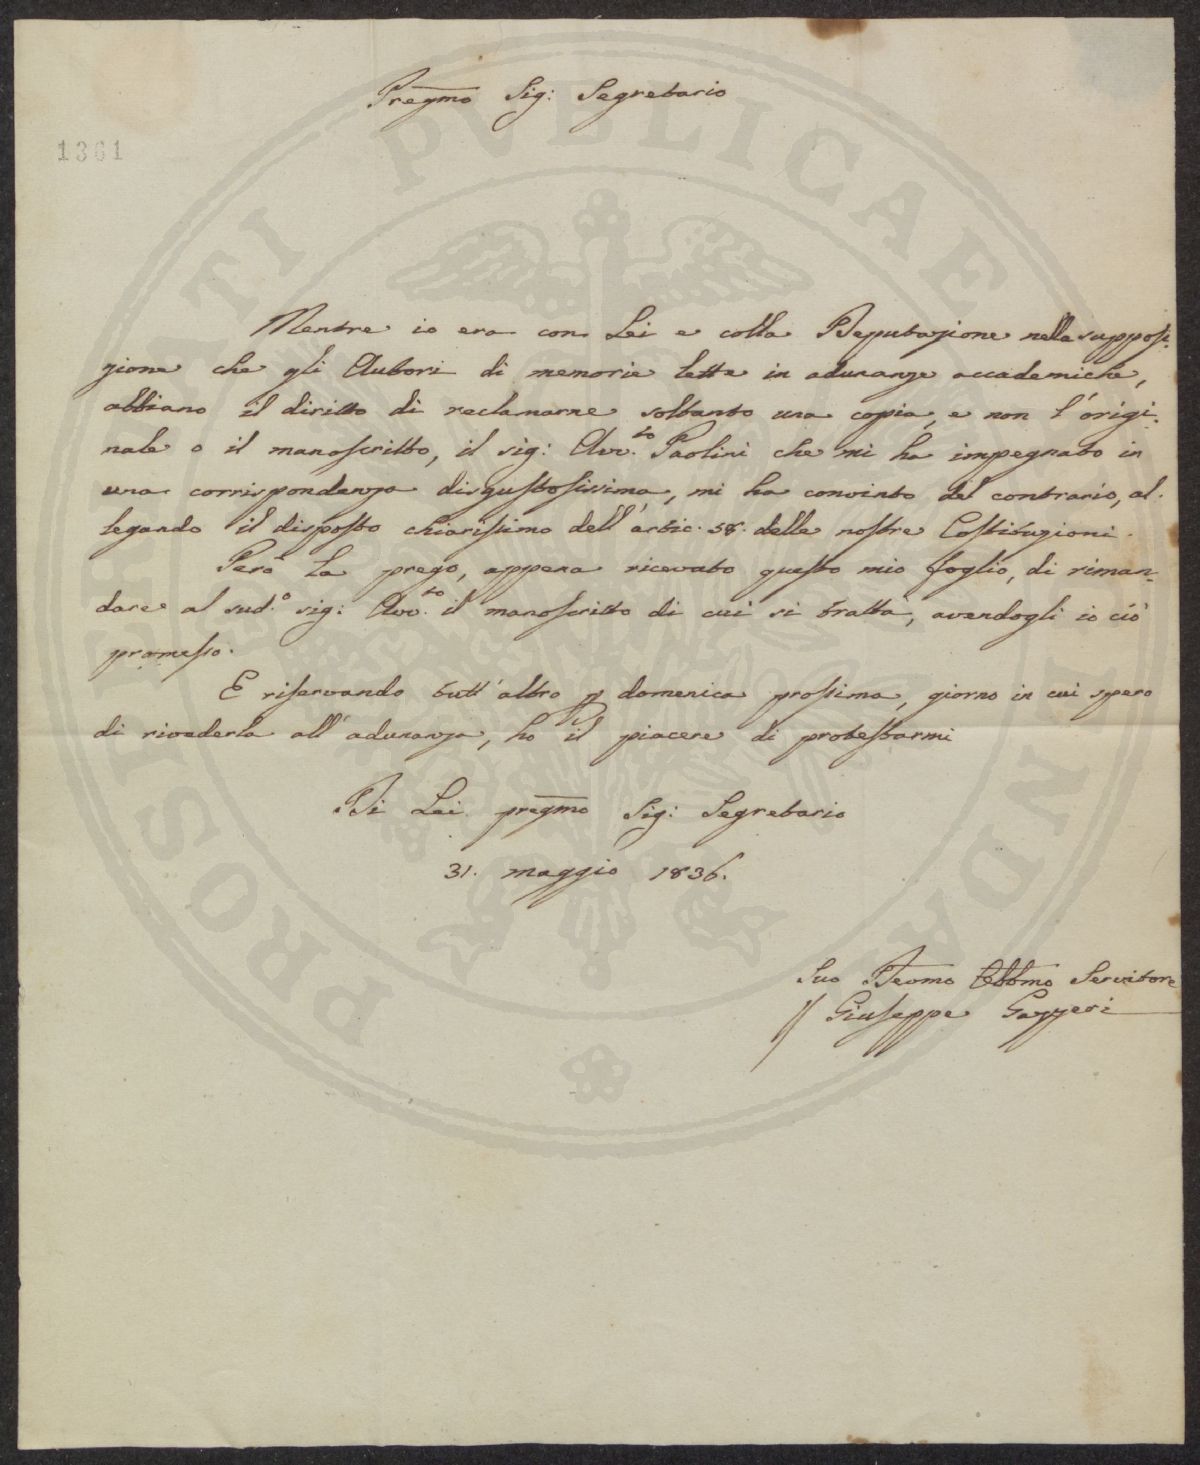 Pregmo Sig: Segretario
1361
PROSPERITATI PVBLICAE AVGENDAE
Mentre io era con Lei e colla Deputazione nella supposi-
zione che gli Autori di memorie lette in adunanze accademiche,
abbiano il diritto di reclamarne soltanto una copia, e non l'origi-
nale o il manoscritto, il sig: Avv.to Paolini che mi ha impegnato in
una corrispondenza disgustosissima, mi ha convinto del contrario, al-
legando il disposto chiarissimo dell'artic. 58. delle nostre Costituzioni.
Però La prego, appena ricevuto questo mio foglio, di riman-
dare al sud.o sig: Avv.to il manoscritto di cui si tratta, avendogli io ciò
promesso.
E riservando tutt'altro p domenica prossima, giorno in cui spero
di rivederla all'adunanza, ho il piacere di protestarmi
Di Lei pregmo Sig: Segretario
31. maggio 1836.
Suo Devmo Obbmo Servitore
Giuseppe Gazzeri